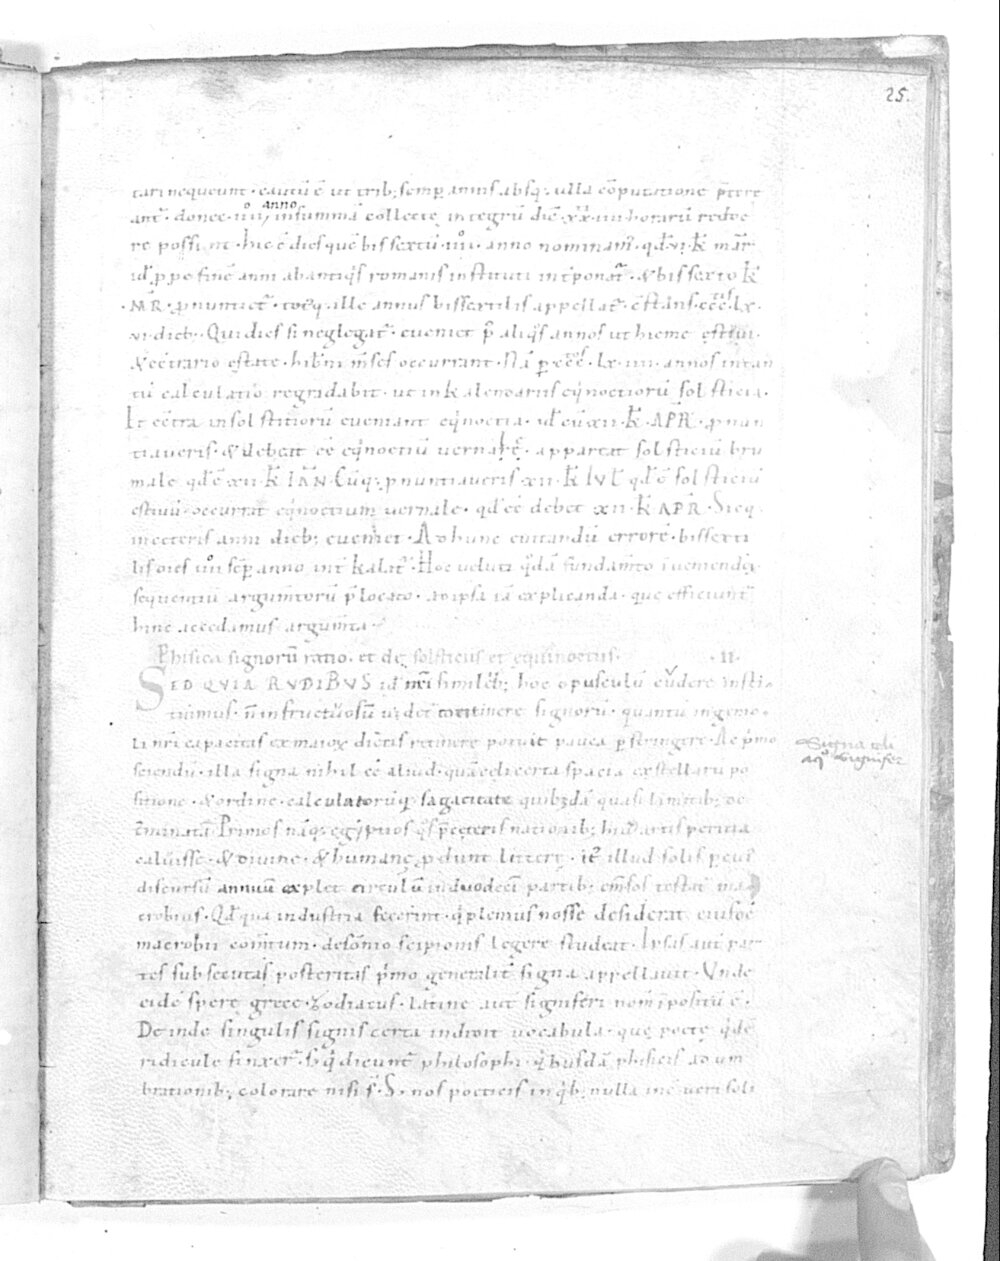 25.
tari nequeunt · cautū ē ut trib; semp annis absq; ulla cōputatione p̄tere
ant᷑ · donec iiii anno in summā collectę integrū diē xxiiii horarū redde
re possint · hic ē dies quē bissextū iiii · anno nominam᷑ · qd̄ vi · k̄ mar̄
id ꝓpe finē anni ab antiqis romanis instituti int̄ponat᷑ · & bissexto k̄
MR̄ · ꝓnuntiet᷑ · totq; ille annus bissextilis appellat᷑ · cstans ccc lx
vi dieb; Qui dies si neglegat᷑ · eueniet p aliqs annos ut hieme estiui
& cc̄trario estate · hib̄ni m̄ses occurrant · Nā p ccc · lx · iiii · annos in tan
tū calculatio regridabit · ut in kalendariis eqnoctiorū solsticia ·
Et cc̄tra in solstitiorū eueniant eqnoctia · id cū xii · k̄ · APR̄ · ꝓnun
tiaueris · & debeat cē eqnoctiū uernale · appareat solsticiū bru
male qd̄ ē xii · k̄ IAN · Cūq; ꝓnuntiaueris · xii · k̄ IVL̄ qd̄ ē solsticiū
estiuū occurrat eqnoctium uernale · qd̄ cē debet xii · k̄ APR̄ · Sicq;
in ceteris anni dieb; eueniet · Ad hunc euitandū errorē · bissexti
lis dies iiii semp anno int kalat᷑ · Hoc ueluti qdā fundamto inueniendi
sequentiū argumtorū plocato · ad ipsa iā explicanda · quę efficiunt᷑
hinc accedamus argumta ·
Phisica signorū ratio · et de solsticiis et equinoctiis · II ·
SED QVIA RVDIBVS id nr̄i similib; hoc opusculū cudere insti
tuimus · n̄ infructuosū uidet᷑ continere signorū · quantū ingenio
li nr̄i capacitas ex maioꝝ dictis retinere potuit pauca pstringere · Ac pmo
sciendū · illa signa nihil cē aliud · quā celi certa spacia ex stellarū po
sitione · & ordine · calculatorūq; sagacitate quibdā quasi limitib; de
t̄minata · Primos naq; egyptios qs p̄ ceteris nationib; hui artis peritiā
caluisse · & diuine · & humanę ꝓdunt litterę · it᷑ illud solis p eius
discursū annuū explet circulū in duodecī partib; emsos testat᷑ ma
crobius · Qd̄ qua industria fecerint · qplenius nosse desiderat eiusdē
macrobii com̄tum · de somnio scipionis legere studeat · Ipsas aut par
tes subsecutas posteritas pmo generalit᷑ signa appellauit · Vnde
eidē sperę grece · zodiacus · latine aut signiferi nom̄ positū ē ·
Deinde singulis signis certa indidit uocabula · quę poetę qdē
ridicule finxer̄ · sꝫ qd dicunt᷑ philosophi · qbusdā phisicis adum
brationib; colorare nisi s · Sꝫ nos poeticis in qb; nulla inē ueri soli
Signa celi
aq̄ signifer